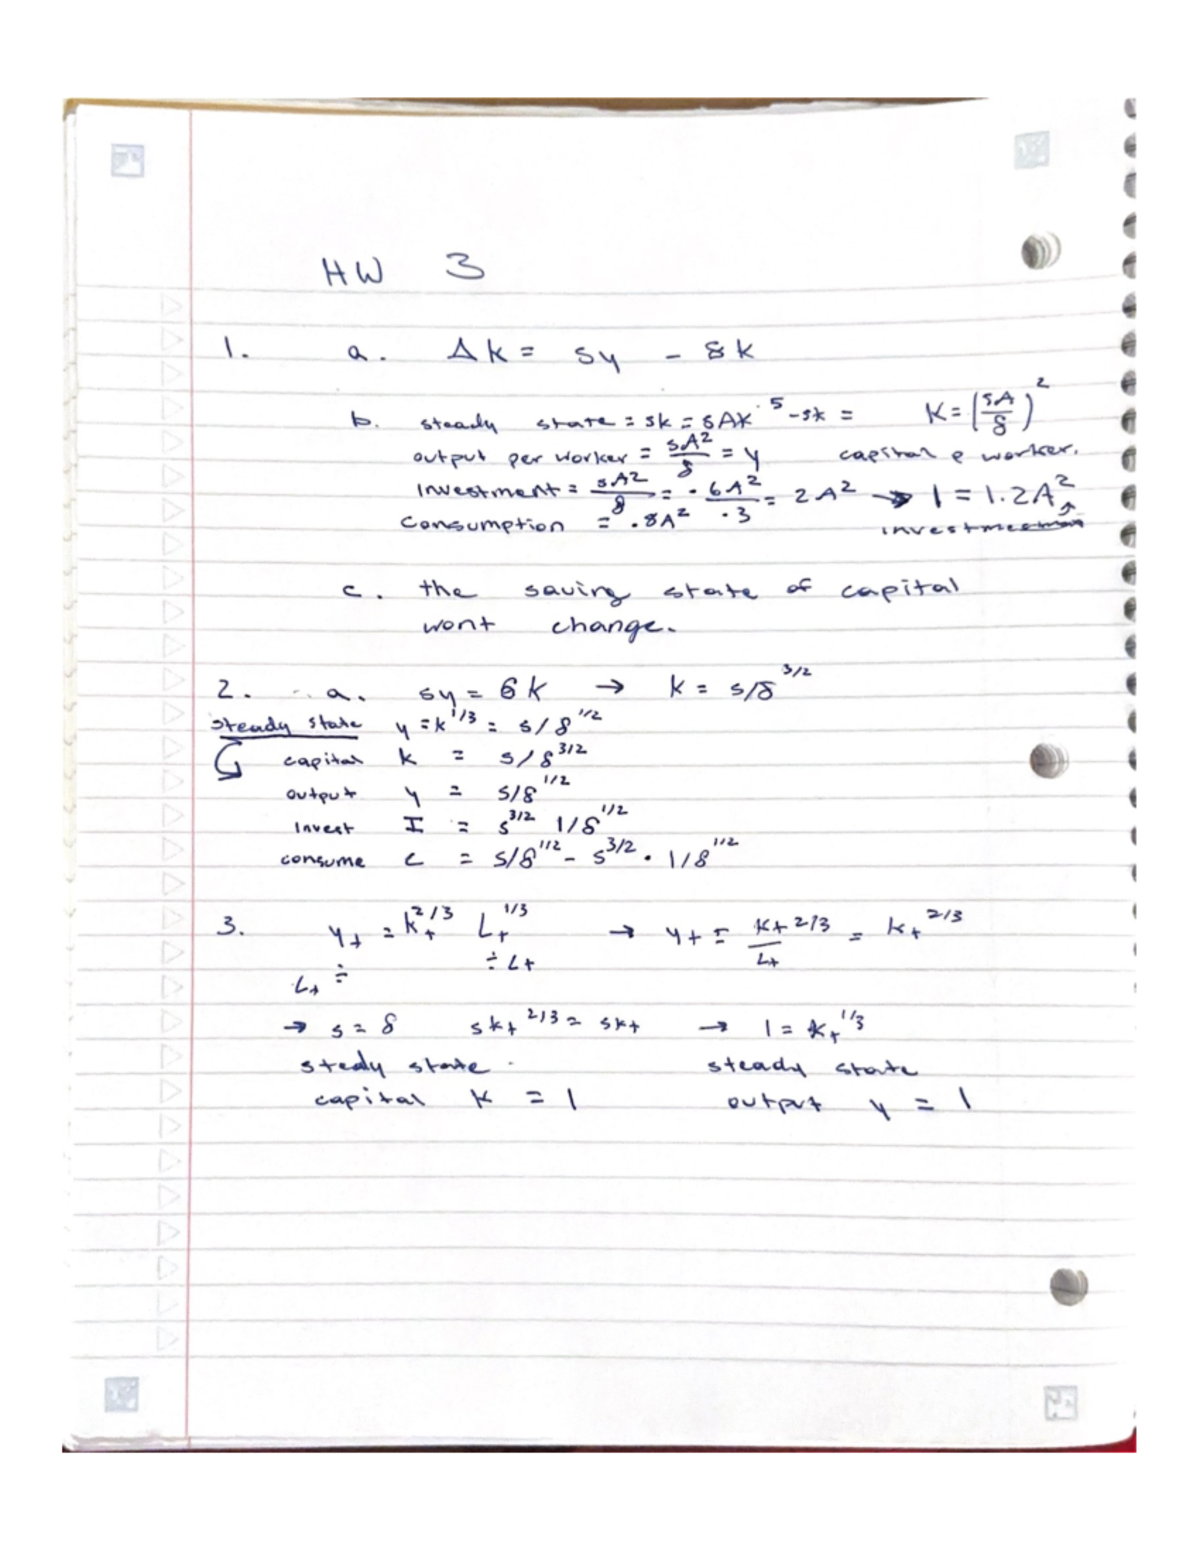 HW 3
1. a. Δk = sy - δk
b. steady state = sk = sAk^.5 - sk = K = (sA/δ)^2
output per worker = sA^2/δ = y capital p worker.
Investment = sA^2/δ = .6A^2/.3 = 2A^2 → I = 1.2A^2
Consumption = .8A^2
c. the saving state of capital
wont change.
2. a. sy = 6k → k = s/δ^3/2
steady state y = k^1/3 = s/δ^1/2
capital k = s/δ^3/2
output y = s/δ^1/2
Invest I = s^3/2 1/δ^1/2
consume c = s/δ^1/2 - s^3/2 · 1/δ^1/2
3. y_t = k_t^2/3 L_t^1/3 → y_t = k_t^2/3 / L_t = k_t^2/3
L_t ÷ ÷ L_t
→ s = δ sk_t^2/3 = sk_t → 1 = k_t^1/3
stedy state steady state
capital k = 1 output y = 1